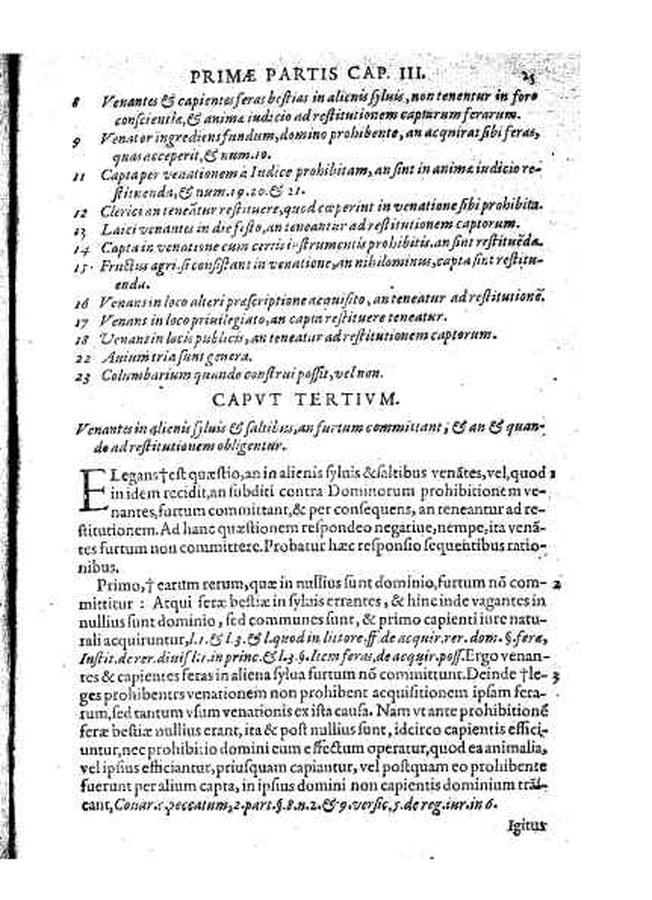 PRIMÆ PARTIS CAP. III. 25
8 Venantes & capientes feras bestias in alienis syluis, non tenentur in foro
conscientiæ, & animæ iudicio ad restitutionem captarum ferarum.
9 Venator ingrediens fundum, domino prohibente, an acquirat sibi feras,
quas acceperit, & num. 10.
11 Capta per venationem à Iudice prohibitam, an sint in animæ iudicio re-
stituenda, & num. 19. 20. & 21.
12 Clerici an teneãtur restituere, quod cœperint in venatione sibi prohibita.
13 Laici venantes in die festo, an teneantur ad restitutionem captorum.
14 Capta in venatione cum certis instrumentis prohibitis. an sint restituẽda.
15. Fructus agri. si consistant in venatione, an nihilominus, capta sint restitu-
enda.
16 Venans in loco alteri præscriptione acquisito, an teneatur ad restitutionẽ.
17 Venans in loco priuilegiato, an capta restituere teneatur.
18 Venans in locis publicis, an teneatur ad restitutionem captorum.
22 Auium tria sunt genera.
23 Columbarium quando construi possit, vel non.
CAPVT TERTIVM.
Venantes in alienis syluis & saltibus, an furtum committant; & an & quan-
do ad restitutionem obligentur.
ELegans † est quæstio, an in alienis syluis & saltibus venãtes, vel, quod 1
in idem recidit, an subditi contra Dominorum prohibitionem ve-
nantes, furtum committant, & per consequens, an teneantur ad re-
stitutionem. Ad hanc quæstionem respondeo negatiue, nempe, ita venã-
tes furtum non committere. Probatur hæc responsio sequentibus ratio-
nibus.
Primo, † earum rerum, quæ in nullius sunt dominio, furtum nõ com- 2
mittitur : Atqui feræ bestiæ in syluis errantes, & hinc inde vagantes in
nullius sunt dominio, sed communes sunt, & primo capienti iure natu-
rali acquiruntur, l. 1. & l. 3. & l. quod in littore. ff. de acquir. rer. dom. §. feræ,
Instit. de rer. diuis. l. 1. in princ. & l. 3. §. Item feras, de acquir. poss. Ergo venan-
tes & capientes feras in aliena sylua furtum nõ committunt. Deinde † le- 3
ges prohibentes venationem non prohibent acquisitionem ipsam fera-
rum, sed tantum vsum venationis ex ista causa. Nam vt ante prohibitionẽ
feræ bestiæ nullius erant, ita & post nullius sunt, idcirco capientis effici-
untur, nec prohibitio domini eum effectum operatur, quod ea animalia,
vel ipsius efficiantur, priusquam capiantur, vel postquam eo prohibente
fuerunt per alium capta, in ipsius domini non capientis dominium trãs-
eant, Couar. c. peccatum, 2. part. §. 8. n. 2. & 9. versic. 5. de reg. iur. in 6.
Igitur